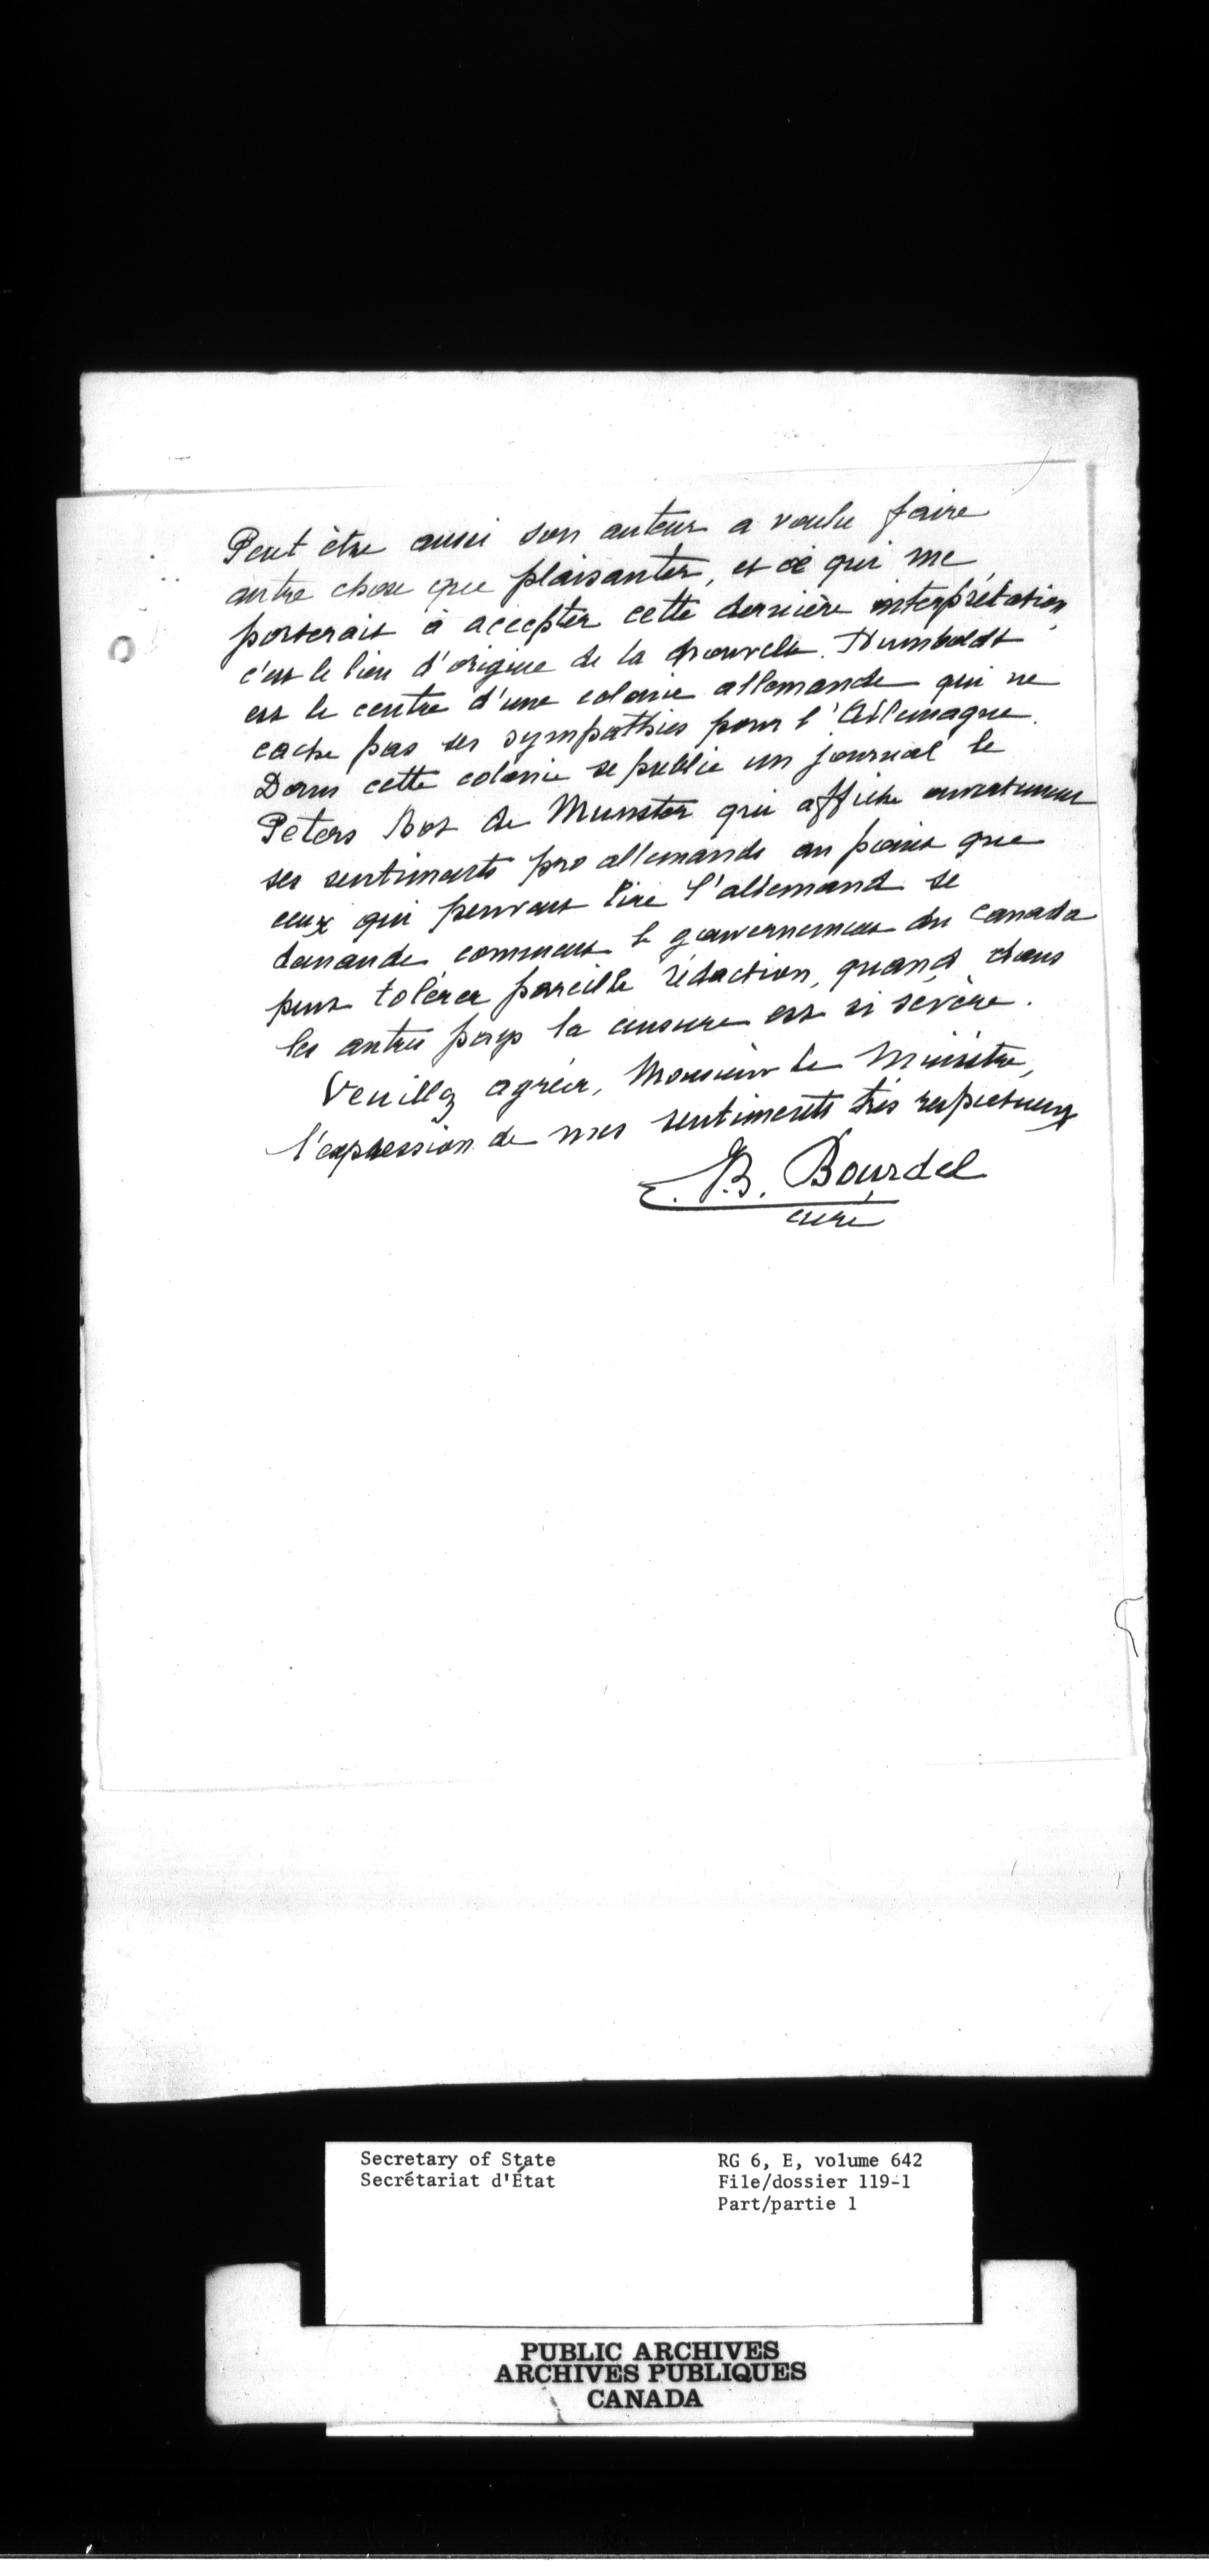 Peut être aussi son auteur a voulu faire
autre chose que plaisanter, et ce qui me
porterait à accepter cette dernière interprétation,
c'est le lieu d'origine de la nouvelle. Humboldt
est le centre d'une colonie allemande qui ne
cache pas ses sympathies pour l'Allemagne.
Dans cette colonie se publie un journal le
Peters Bot de Munster qui affiche ouvertement
ses sentiments pro allemands au point que
ceux qui peuvent lire l'allemand se
demande comment le gouvernement du Canada
peut tolérer pareille rédaction, quand dans
les autres pays la censure est si sévère.
Veuillez agréer, Monsieur le Ministre,
l'expression de mes sentiments très respectueux
E. B. Bourdel
curé
Secretary of State
Secrétariat d'État
RG 6, E, volume 642
File/dossier 119-1
Part/partie 1
PUBLIC ARCHIVES
ARCHIVES PUBLIQUES
CANADA